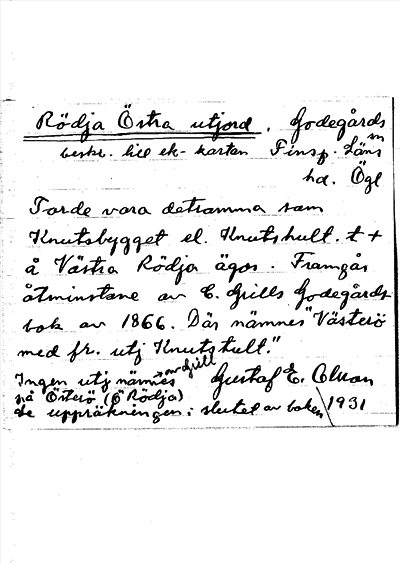 Rödja Östra utjord. Godegårds sn
beskr. till ek-kartan Finsp. Läns
hd. Ögl
Torde vara detsamma som
Knutsbygget el. Knutshult. t +
å Västra Rödja ägor. Framgår
åtminstone av C. Grills Godegårds
bok av 1866. Där nämnes "Västerö
med fr. utj Knutshult."
Ingen utj nämnes av Grill
på Österö (Ö Rödja)
se uppräkningen i slutet av boken
Gustaf E. Olsson
1931